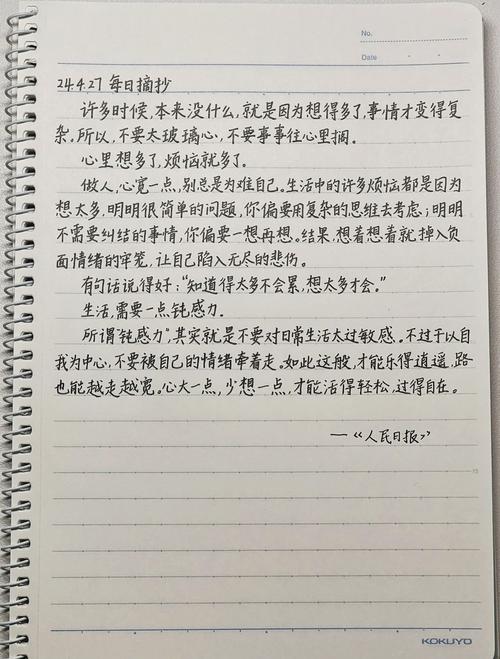 No.
Date
24.4.27 每日摘抄
许多时候，本来没什么，就是因为想得多了，事情才变得复
杂。所以，不要太玻璃心，不要事事往心里搁。
心里想多了，烦恼就多了。
做人，心宽一点，别总是为难自己。生活中的许多烦恼都是因为
想太多，明明很简单的问题，你偏要用复杂的思维去考虑；明明
不需要纠结的事情，你偏要一想再想。结果，想着想着就掉入负
面情绪的牢笼，让自己陷入无尽的悲伤。
有句话说得好：“知道得太多不会累，想太多才会。”
生活，需要一点钝感力。
所谓“钝感力”，其实就是不要对日常生活太过敏感。不过于以自
我为中心，不要被自己的情绪牵着走。如此这般，才能乐得逍遥，路
也能越走越宽。心大一点，少想一点，才能活得轻松，过得自在。
—《人民日报》
KOKUYO